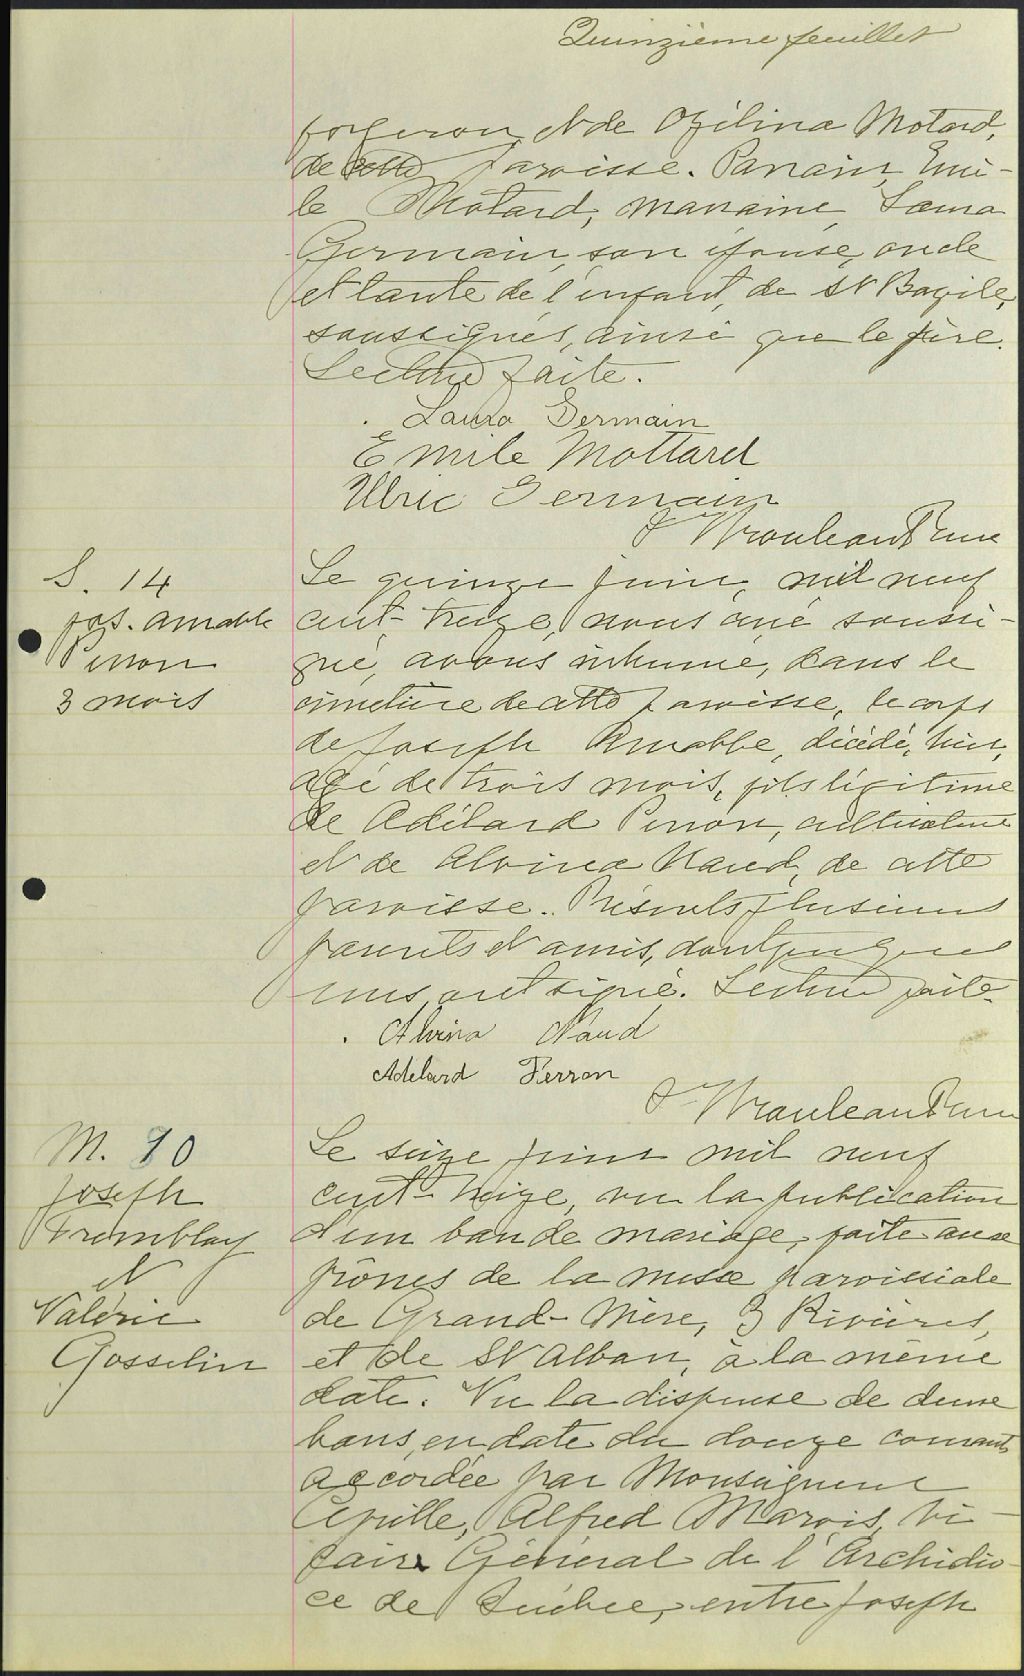 Quinzième feuillet
forgeron, et de Ozélina Motard,
de cette paroisse. Parrain, Emi-
le Motard, marraine, Laura
Germain, son épouse, oncle
et tante de l'enfant, de St Bazile,
soussignés, ainsi que le père.
Lecture faite.
Laura Germain
Emile Mottard
Ulric Germain
Rouleau Ptre curé
S. 14
Jos. Amable
Perron
3 mois
Le quinze juin, mil neuf
cent-treize, nous curé soussi-
gné, avons inhumé, dans le
cimetière de cette paroisse, le corps
de Joseph Amable, décédé, hier,
agé de trois mois, fils légitime
de Adélard Perron, cultivateur
et de Alvina Naud, de cette
paroisse. Présents plusieurs
parents et amis, dont quelques
uns ont signé. Lecture faite.
Alvina Naud
Adelard Perron
Rouleau Ptre curé
M. 10
Joseph
Tremblay
et
Valérie
Gosselin
Le seize juin mil neuf
cent-treize, vu la publication
d'un ban de mariage, faite aux
prônes de la messe paroissiale
de Grand-Mère, 3 Rivières,
et de St Alban, à la même
date. Vu la dispense de deux
bans, en date du douze courant
accordée par Monseigneur
Cyrille, Alfred Marois, Vi-
caire Général de l'Archidio-
ce de Québec, entre Joseph